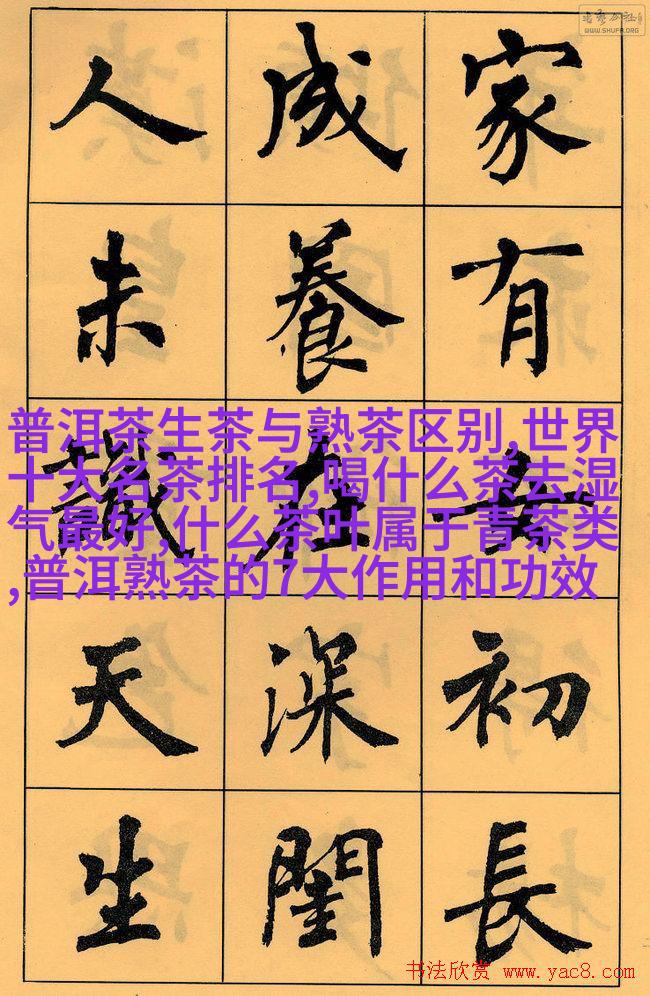 WWW.SHUFA.ORG
家有女初長
成養在深閨
人未識天生
普洱茶生茶与熟茶区别,世界
十大名茶排名,喝什么茶去湿
气最好,什么茶叶属于青茶类
,普洱熟茶的7大作用和功效
书法欣赏 www.yac8.com